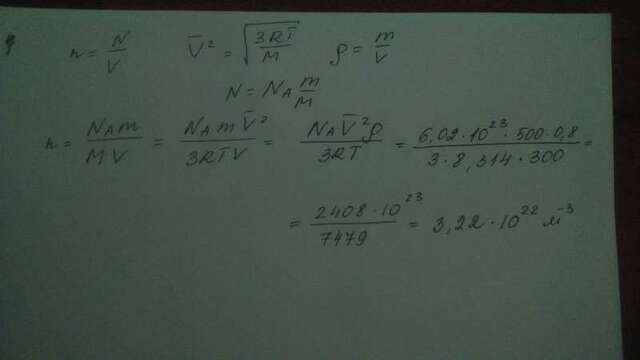 n = N/V   V̄² = √(3RT/M)   ρ = m/V
N = N_A m/M
n = N_A m / MV = N_A m V̄² / 3RTV = N_A V̄² ρ / 3RT = 6,02 · 10²³ · 500 · 0,8 / 3 · 8,314 · 300 =
= 2408 · 10²³ / 7479 = 3,22 · 10²² м⁻³